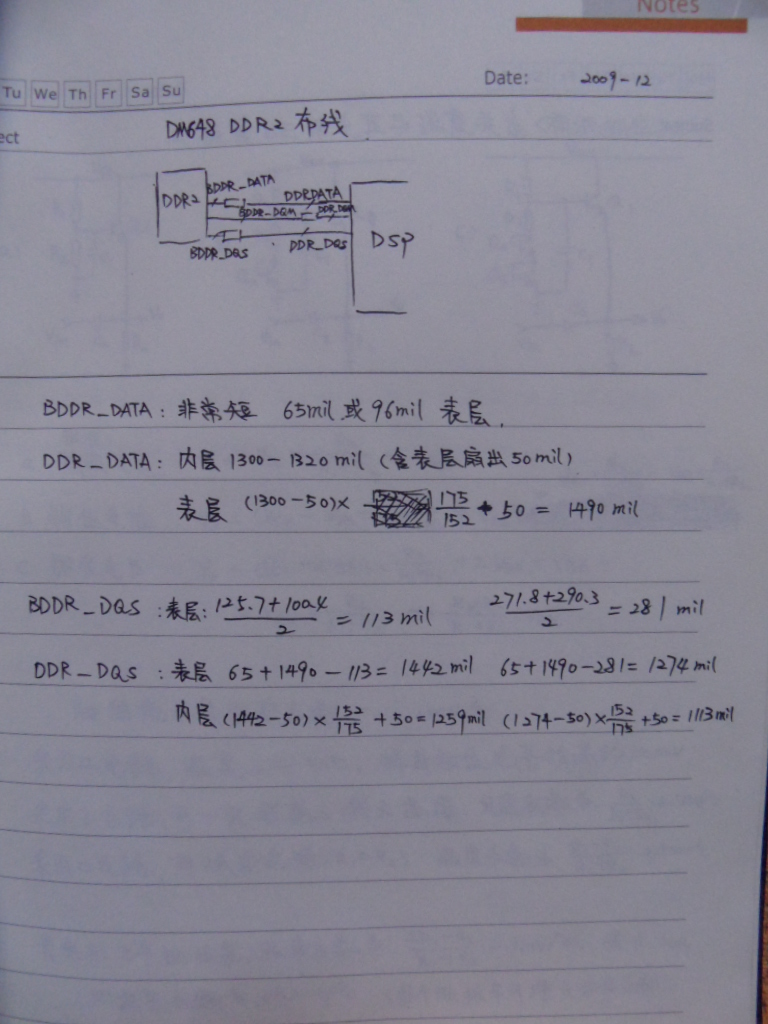 Notes
Tu We Th Fr Sa Su
Date: 2009-12
ect
DM648 DDR2 布线
BDDR_DATA DDRDATA
DDR2 BDDR_DQM DDR_DQM
DSP
BDDR_DQS DDR_DQS
BDDR_DATA: 非常短 65mil 或 96mil 表层.
DDR_DATA: 内层 1300-1320 mil (含表层扇出50mil)
表层 (1300-50)× 175/152 + 50 = 1490 mil
BDDR_DQS :表层: (125.7+100.4)/2 = 113 mil (271.8+290.3)/2 = 281 mil
DDR_DQS : 表层 65+1490-113= 1442mil 65+1490-281= 1274 mil
内层 (1442-50)× 152/175 +50=1259mil (1274-50)× 152/175 +50= 1113mil